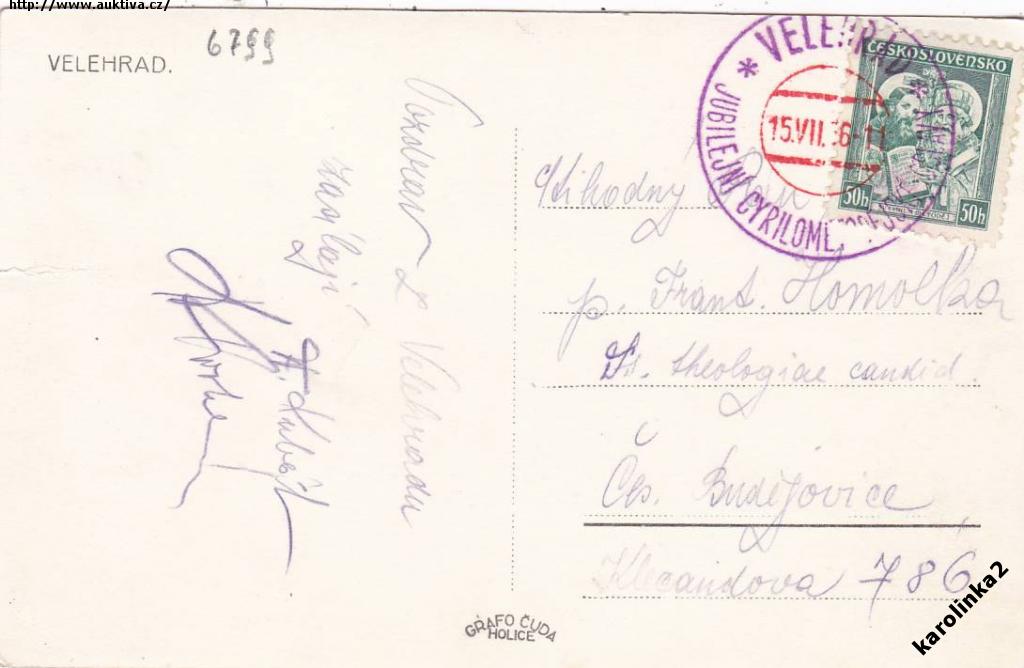 http://www.auktiva.cz/
VELEHRAD.
6799
Pozdrav z Velehradu
zasílají
VELEHRAD
JUBILEJNÍ CYRILOME
15.VII.36-11
ČESKOSLOVENSKO
50h 50h
Ctihodný Pan
p. Frant. Homolka
theologiae candid.
Čes. Budějovice
Klecandova 786
GRAFO ČUDA
HOLICE
karolinka2